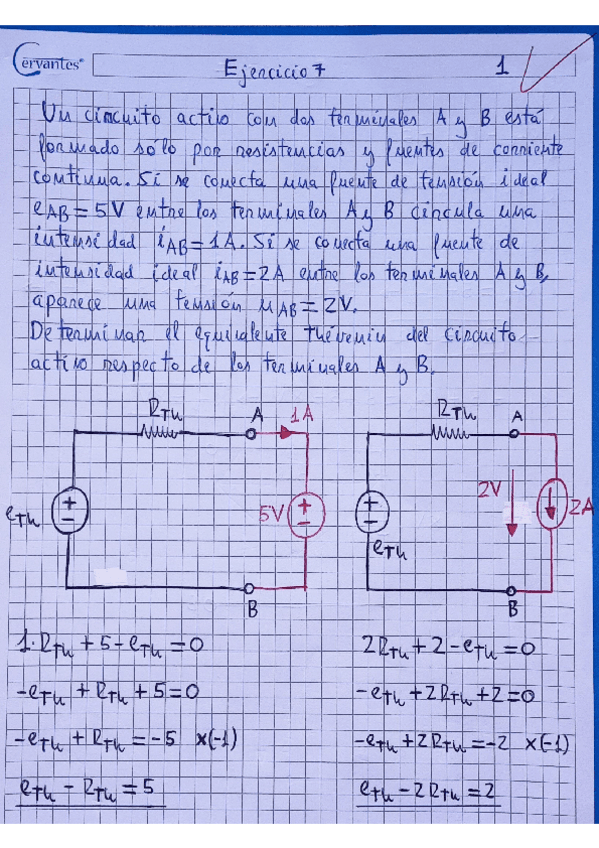 Cervantes®
Ejercicio 7
1
Un circuito activo con dos terminales A y B está
formado sólo por resistencias y fuentes de corriente
continua. Si se conecta una fuente de tensión ideal
eAB=5V entre los terminales A y B circula una
intensidad iAB=1A. Si se conecta una fuente de
intensidad ideal iAB=2A entre los terminales A y B,
aparece una tensión uAB=2V.
Determinar el equivalente Thévenin del circuito
activo respecto de los terminales A y B.
RTh A 1A
eTh + − 5V + −
B
RTh A
+ − eTh 2V 2A
B
1·RTh + 5 - eTh = 0
-eTh + RTh + 5 = 0
-eTh + RTh = -5 x(-1)
eTh - RTh = 5
2RTh + 2 - eTh = 0
-eTh + 2RTh + 2 = 0
-eTh + 2RTh = -2 x(-1)
eTh - 2RTh = 2